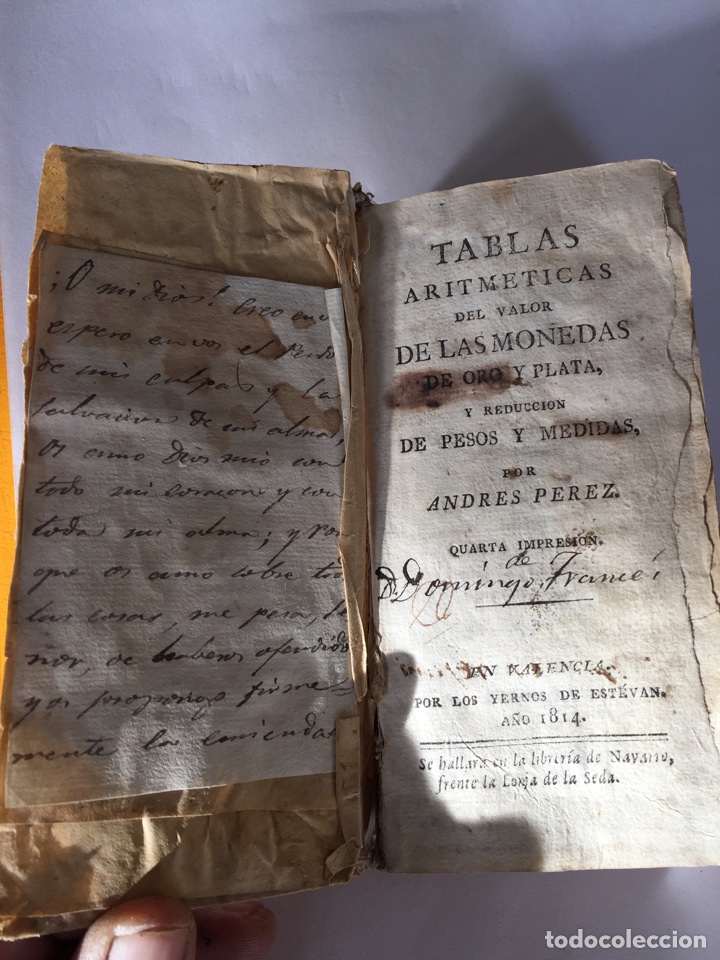 ¡O mi dios! Creo en vos
espero en vos el Perdo
de mis culpas y la
salvacion de mi alma,
os amo Dios mio con
todo mi corazon y con
toda mi alma; y Por
que os amo sobre to
las cosas, me pesa, Se
ñor, de haberos ofendido
y os propongo firme=
mente la enmienda
TABLAS
ARITMETICAS
DEL VALOR
DE LAS MONEDAS
DE ORO Y PLATA,
Y REDUCCION
DE PESOS Y MEDIDAS,
POR
ANDRES PEREZ.
QUARTA IMPRESION.
de
D. Domingo Francés
EN VALENCIA.
POR LOS YERNOS DE ESTÉVAN.
AÑO 1814.
Se hallará en la librería de Navarro,
frente la Lonja de la Seda.
todocoleccion